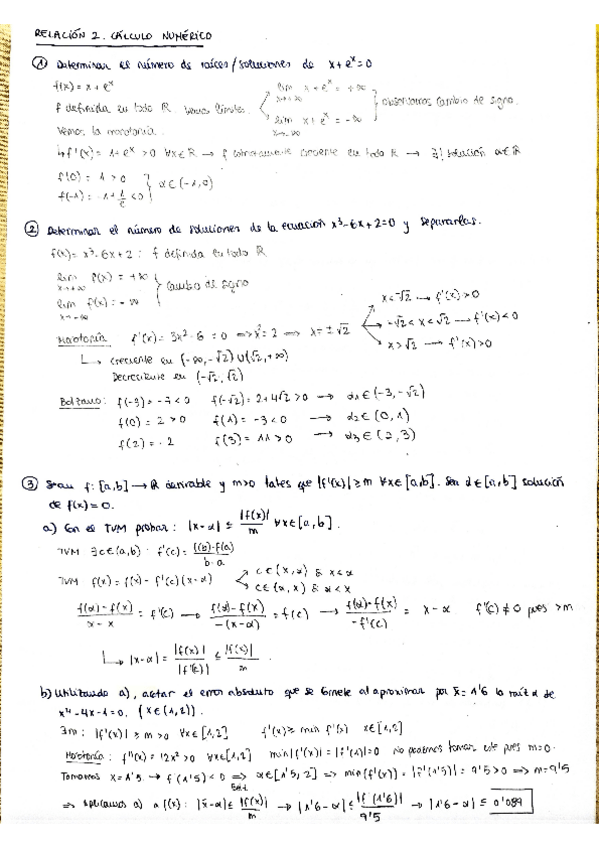 RELACIÓN 2. CÁLCULO NUMÉRICO
① Determinar el número de raíces/soluciones de x + e^x = 0
f(x) = x + e^x
f definida en todo R. Vemos límites.
lim x→+∞ x + e^x = +∞
lim x→-∞ x + e^x = -∞
observamos cambio de signo.
Vemos la monotonía.
↳ f'(x) = 1 + e^x > 0 ∀x∈R → f estrictamente creciente en todo R → ∃! solución α∈R
f(0) = 1 > 0
f(-1) = -1 + 1/e < 0
α∈(-1,0)
② Determinar el número de soluciones de la ecuación x³-6x+2=0 y separarlas.
f(x) = x³-6x+2 ; f definida en todo R
lim x→+∞ f(x) = +∞
lim x→-∞ f(x) = -∞
Cambio de signo
Monotonía f'(x) = 3x²-6 = 0 ⟹ x² = 2 ⟹ x = ±√2
x < -√2 → f'(x) > 0
-√2 < x < √2 → f'(x) < 0
x > √2 → f'(x) > 0
↳ creciente en (-∞,-√2) ∪ (√2,+∞)
Decreciente en (-√2, √2)
Bolzano: f(-3) = -7 < 0 f(-√2) = 2+4√2 > 0 → α1∈(-3,-√2)
f(0) = 2 > 0 f(1) = -3 < 0 → α2∈(0,1)
f(2) = -2 f(3) = 11 > 0 → α3∈(2,3)
③ Sean f: [a,b] → R derivable y m>0 tales que |f'(x)| ≥ m ∀x∈[a,b]. Sea α∈[a,b] solución
de f(x)=0.
a) Con el TVM probar: |x-α| ≤ |f(x)|/m ∀x∈[a,b].
TVM ∃c∈(a,b) · f'(c) = f(b)-f(a)/b-a
TVM f(α) = f(x) - f'(c)(x-α)
c∈(x,α) & x<α
c∈(α,x) & α<x
f(α)-f(x)/α-x = f'(c) → f(α)-f(x)/-(x-α) = f'(c) → f(α)-f(x)/-f'(c) = x-α f'(c) ≠ 0 pues > m
↳ |x-α| = |f(x)|/|f'(c)| ≤ |f(x)|/m
b) Utilizando a), acotar el error absoluto que se comete al aproximar por x̄=1'6 la raíz α de
x⁴-4x-1=0. (x∈(1,2)).
∃m: |f'(x)| ≥ m > 0 ∀x∈[1,2] f'(x) ≥ min f'(x) x∈[1,2]
Monotonía: f''(x) = 12x² > 0 ∀x∈[1,2] min|f'(x)| = |f'(1)| = 0 No podemos tomar este pues m=0.
Tomamos x=1'5 → f(1'5) < 0 ⟹ α∈[1'5,2] ⟹ min(f'(x)) = |f'(1'5)| = 9'5 > 0 ⟹ m=9'5
⟹ Aplicamos a) a f(x): |x̄-α| ≤ |f(x)|/m → |1'6-α| ≤ |f(1'6)|/9'5 → |1'6-α| ≤ 0'089